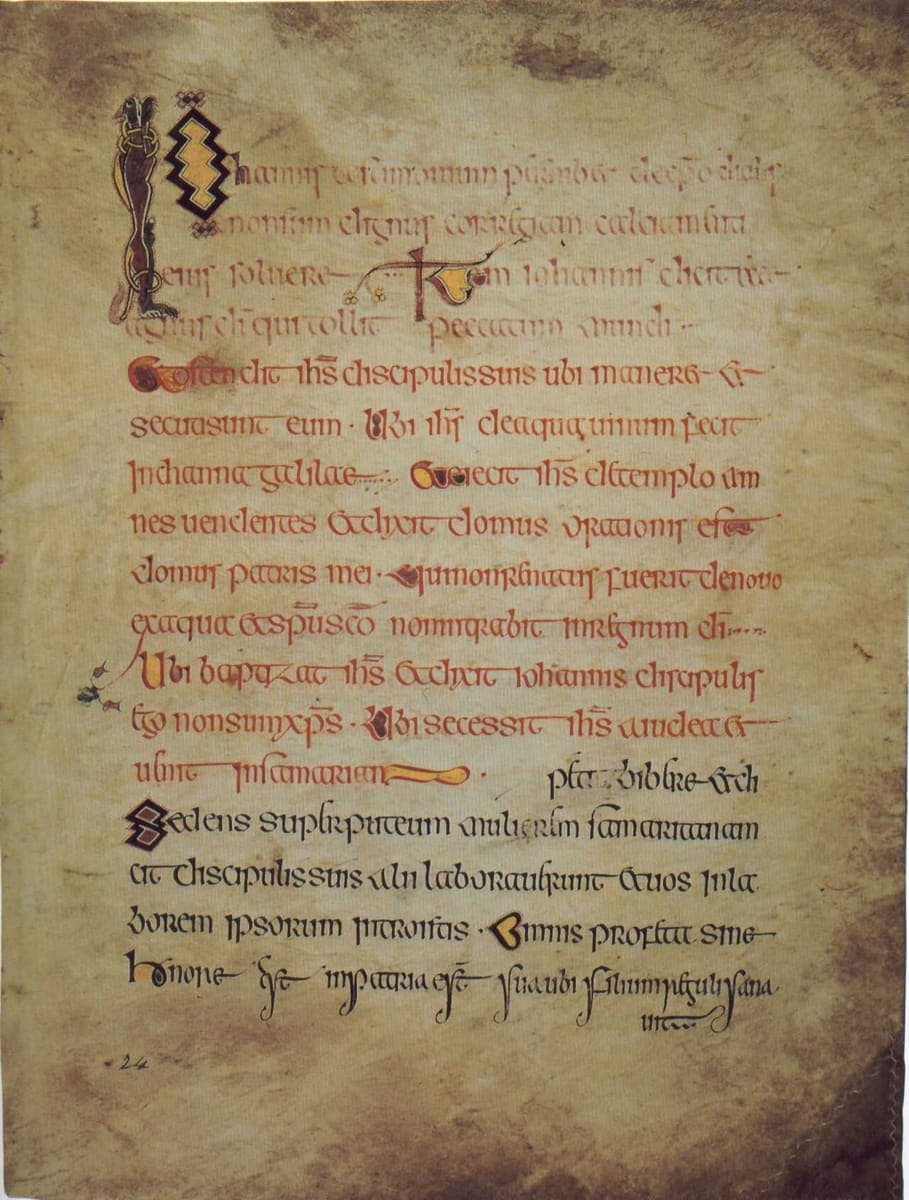 Iohannis testimonium perhibet de xpo dicens
non sum dignus corregiam calciamenti
eius soluere Item iohannis dicit ecce
agnus di qui tollit peccatum mundi
Et ostendit ihs discipulis suis ubi maneret et
secuti sunt eum · Ubi ihs de aqua uinum fecit
in channa galilae · Et eiecit ihs de templo om
nes uendentes et dixit domus orationis est
domus patris mei · Qui non renatus fuerit denouo
ex aqua et spu sco non intrabit in regnum di
Ubi baptizat ihs et dixit iohannis discipulis
ego non sum xps · Ubi secessit ihs a iudea et
uenit in samariam · petit bibere et di
Sedens super puteum mulierem samaritanam
cit discipulis suis alii laborauerunt et uos in la
borem ipsorum introistis · Omnis profeta sine
honore est in patria est sua ubi filium reguli sana
uit
24